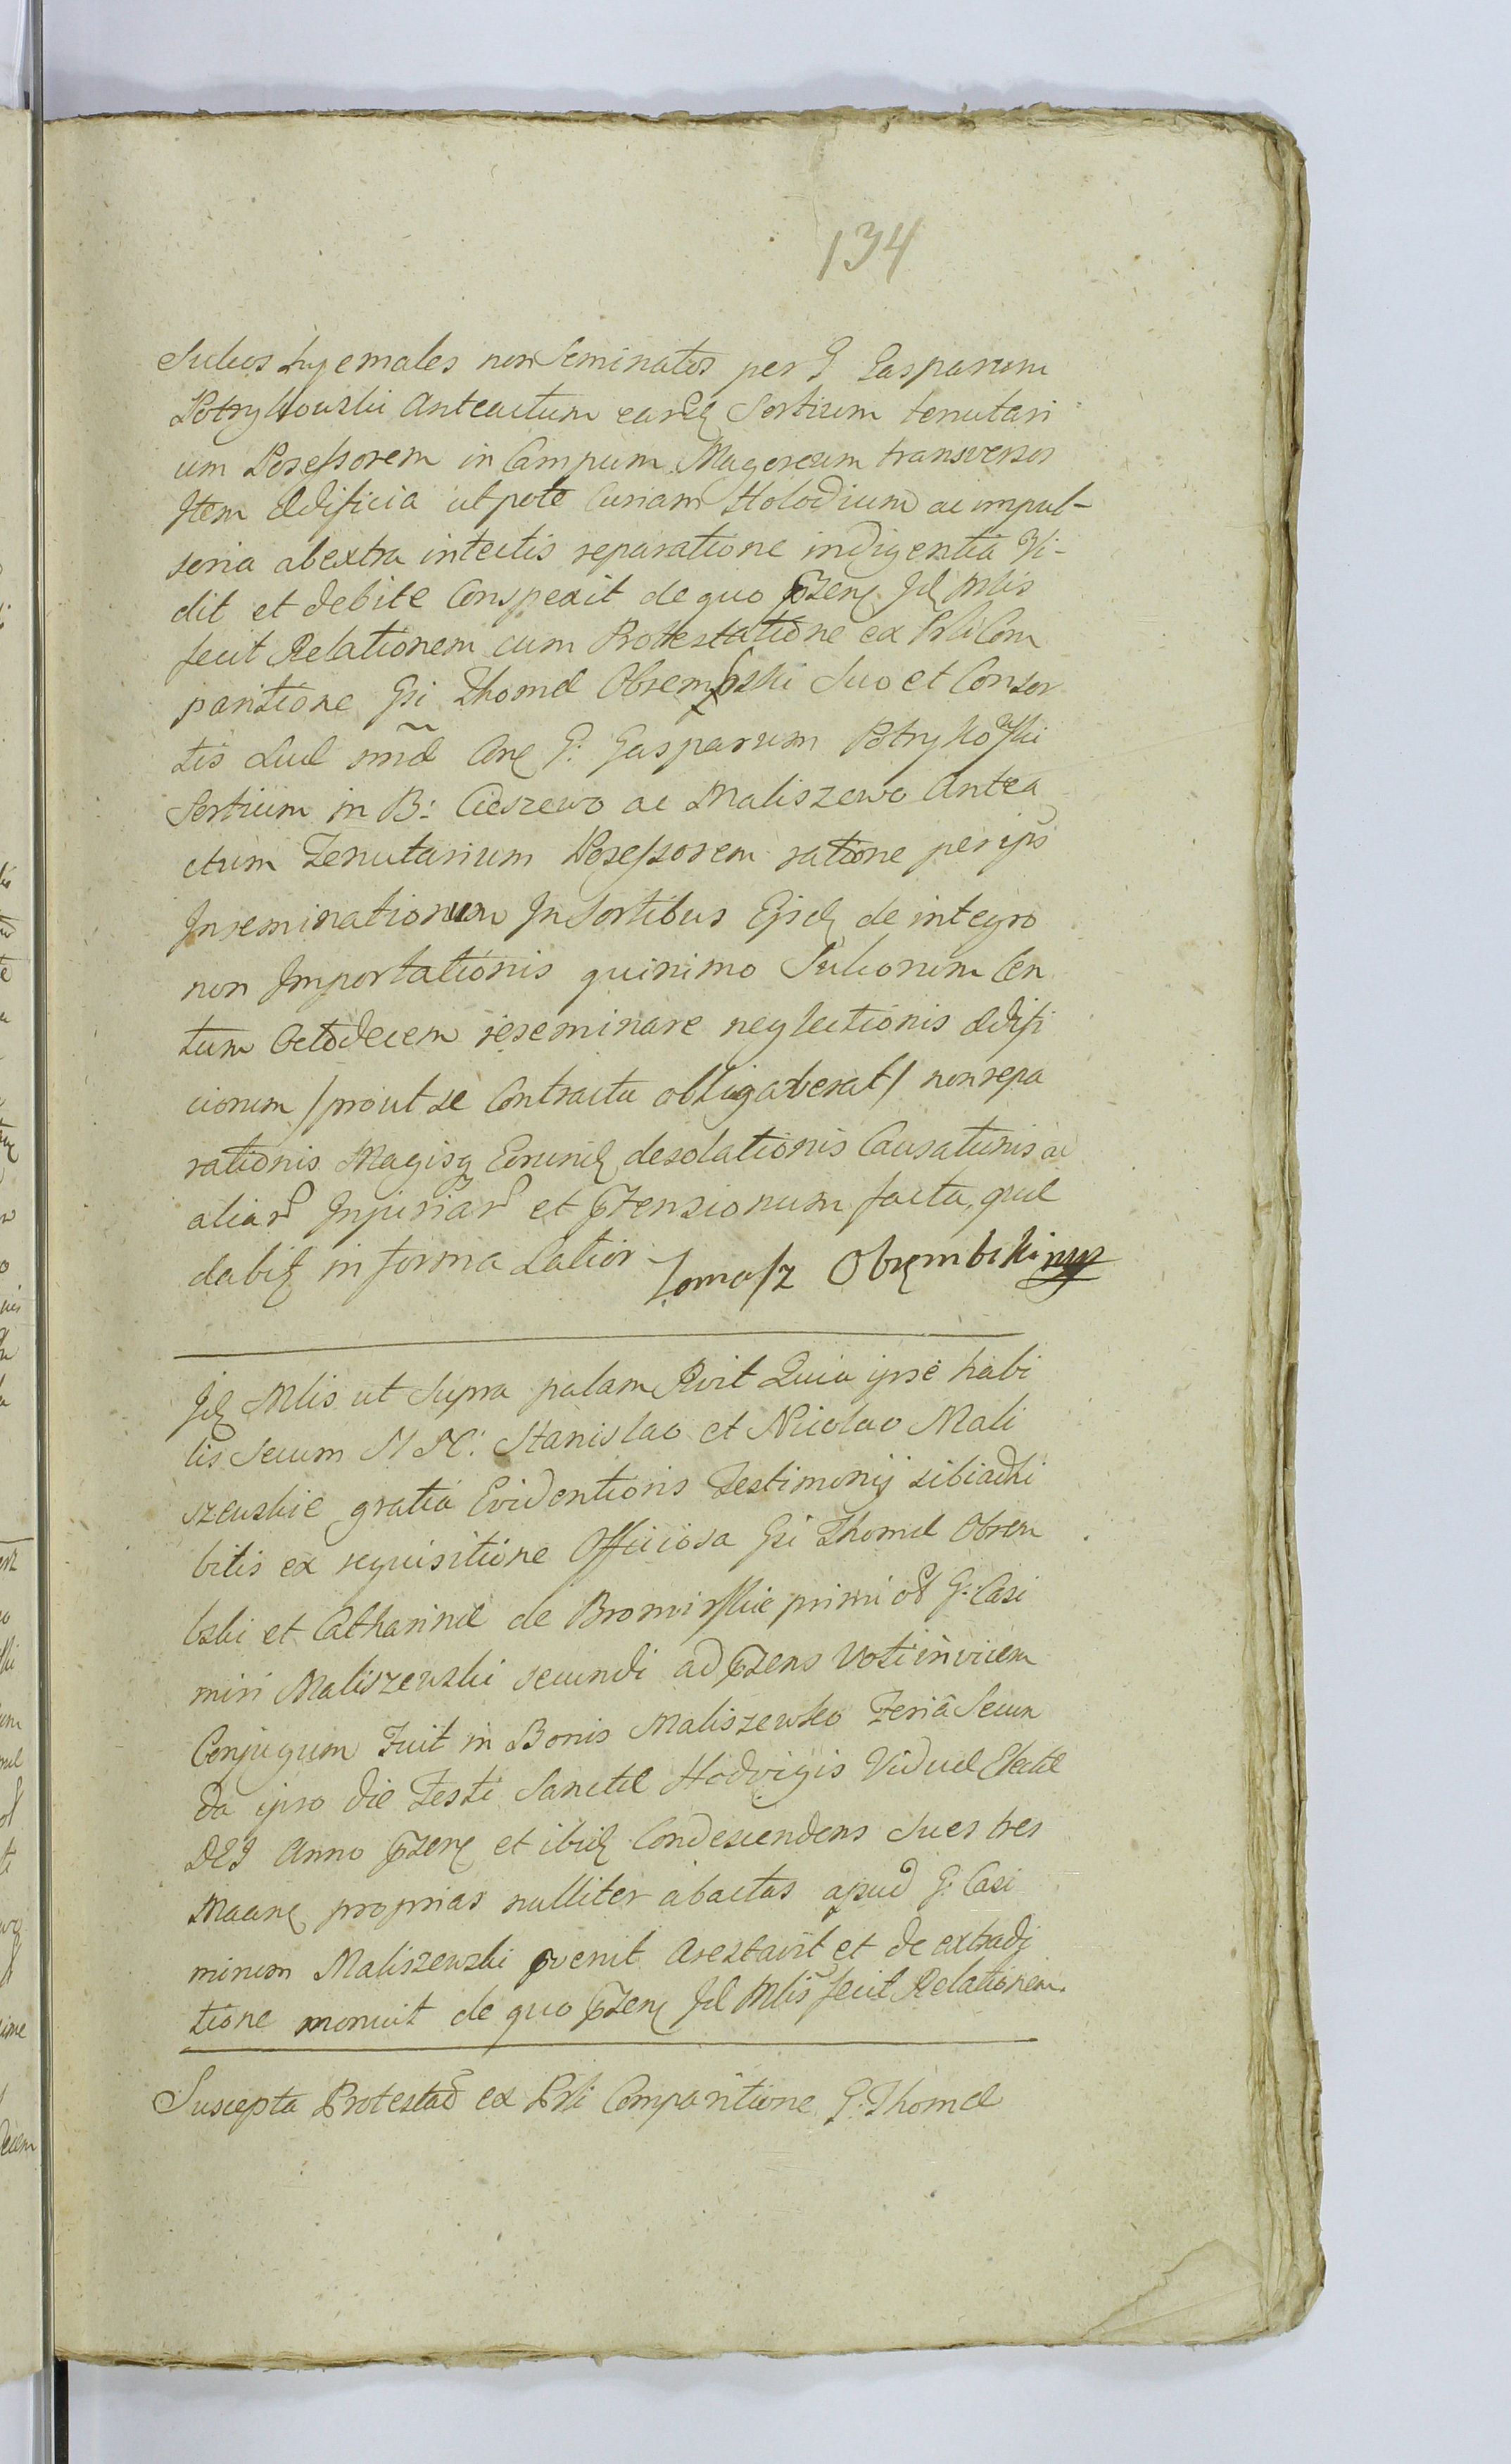 134
Sulcos hyemales non Seminatos per G Gasparum
Potrykowski Anteactum eardę Sortium tenutari
um Possessorem in Campum Magereum transversos
Item Ædificia utpote Curiam Holodium ac impul-
soria ab extra intectis reparatione indigentia Vi-
dit et debite Conspexit de quo pszens Idę Mlis
fecit Relationem cum Protestatione ex Prli Com
paritione Gsi Thomæ Obrembski Suo et Consor
tis Suæ nnæ Cnę G: Gasparum Potrykowski
Sortium in B: Cieszewo ac Maliszewo Antea
ctum Tenutarium Possessorem ratione per ips
Inseminationum In Sortibus Ejsdę de integro
non Importationis quinimo Sulcorum Cen
tum Octodecem reseminare neglectionis Ædifi
ciorum /prout se Contractu obligaverat/ non repa
rationis Magisq Eorundę desolationis Causationis ac
aliar Injuriar et ptensionum facta, quæ
dabitę in forma Latiori
Tomasz Obrembski mp
Idę Mlis ut Supra palam Rvit Quia ipse habi
tis Secum N N: Stanislao et Nicolao Mali
szewskie gratia Evidentioris Testimonij sibi adhi
bitis ex requisitione Officiosa Gsi Thomæ Obrem
bski et Catharinæ de Bromirskie primi ol G: Casi
miri Maliszewski secundi ad pszens Voti invicem
Conjugum Fuit in Bonis Maliszewko Feriâ Secun
da ipso die Festi Sanctæ Hedvigis Viduæ Electæ
DEI Anno pszenę et ibidę Condescendens Sues tres
Maanę proprias nulliter abactas apud G: Casi
mirum Maliszewski pvenit Arestavit et de extradi
tione monuit de quo pszenę Id Mlis fecit Relationem.
Suscepta Protestao ex Prli Comparitione G: Thomæ